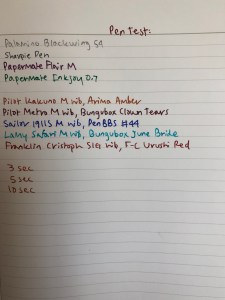 Pen Test:
Palomino Blackwing 602
Sharpie Pen
Papermate Flair M
Papermate Inkjoy 0.7
Pilot Kakuno M nib, Arima Amber
Pilot Metro M nib, Bungubox Clown Tears
Sailor 1911S M nib, PenBBS #44
Lamy Safari M nib, Bungubox June Bride
Franklin Cristoph SIG nib, F-C Urushi Red
3 sec
5 sec
10 sec